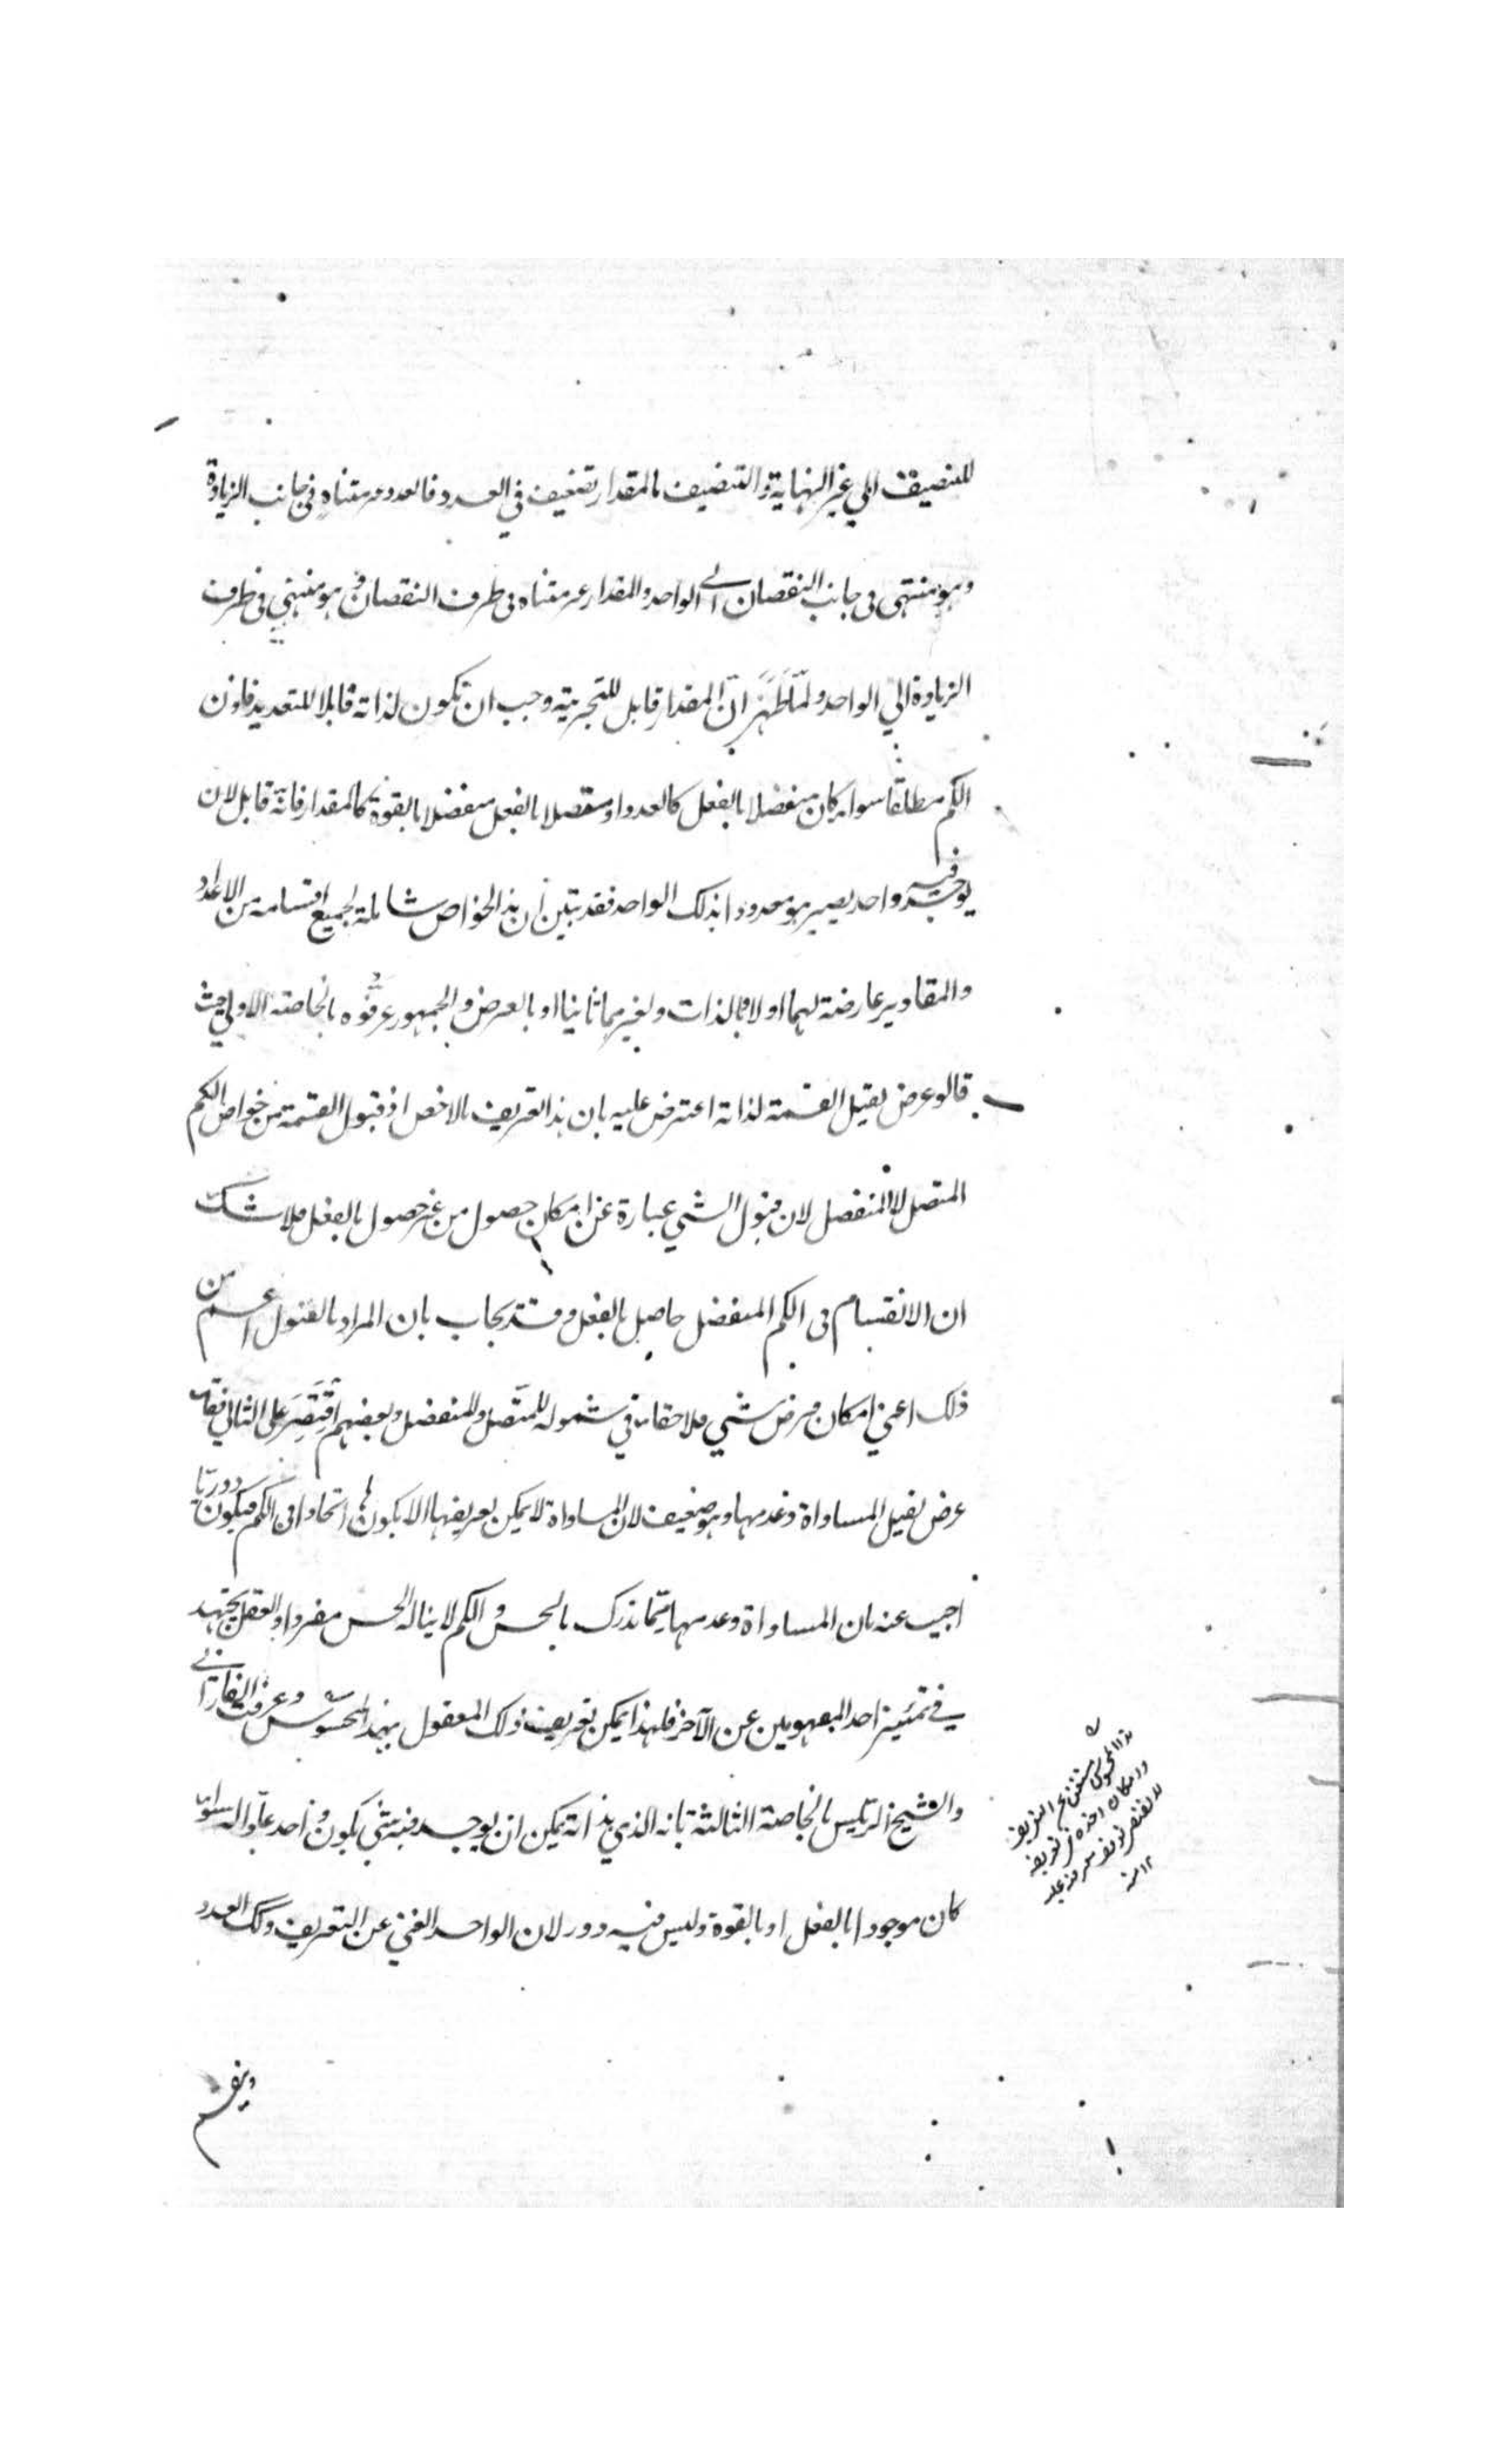 للتنصيف الي غير النهاية والتنصيف بالمقدار تضعيف في العدد فالعدد غير متناه في جانب الزيادة
وهو منتهى في جانب النقصان الے الواحد والمقدار غير متناه في طرف النقصان وهو منتهي في طرف
الزيادة الي الواحد ولمّا ظَهَرَ انّ المقدار قابل للتجزية وجب ان تكون لذاته قابلا للتعديد فاذن
الكم مطلقًا سواء كان منفصلا بالفعل كالعدد او متصلا بالفعل منفصلا بالقوة كالمقدار فانّه قابل لان
يوجد فيه واحد يصير هو معدودا بذلك الواحد فقد تبيّن أن هذا الخواص شاملة لجميع اقسامه من الاعداد
والمقادير عارضة لهما اولا وبالذات ولغيرهما ثانيا او بالعرض والجمهور عرّفوه بالخاصة الاولي حيث
قالو عرض يقبل القسمة لذاته اعترض عليه بان هذا تعريف بالاخص اذ قبول القسمة من خواص الكم
المتصل لا المنفصل لان قبول الشي عبارة عن امكان حصول من غير حصول بالفعل فلا شك
ان الانقسام في الكم المنفصل حاصل بالفعل وقد يجاب بان المراد بالقبول اعم من
ذلك اعني امكان فرض شي فلا خفاء في شموله للمتّصل والمنفصل وبعضهم اقتَصَر على الثاني فقال
عرض يقبل المساواة وعدمها وهو ضعيف لان المساواة لا يمكن تعريفها الا بكونها اتحادا في الكم فيكون دوريّا
اجيب عنه بان المساواة وعدمها ممّا يدرك بالحس والكم لا يناله الحس مفردا والعقل يجتهد
في تمييز احد المفهومين عن الآخر فلهذا يمكن تعريف ذلك المعقول بهذا المحسوس وعرفه الفارابے
والشيخ الرئيس بالخاصة الثالثة بانه الذي بذاته يمكن ان يوجد فيه شي يكون واحد عادّا له سواء
كان موجودا بالفعل او بالقوة وليس فيه دور لان الواحد الغني عن التعريف ولك العدد
هذا المحسوس مستغن عن التعريف
١٢ منه
وينقسم